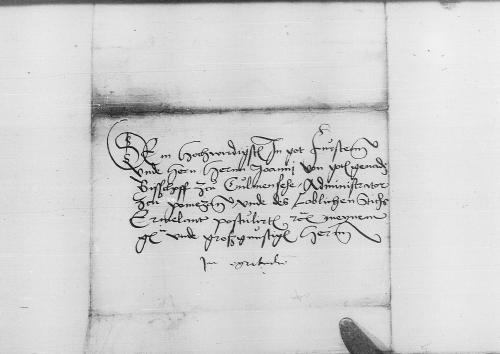 Dem hochwirdigstn In got Fursten
Unde hern hern Joanni von gots genadn
Bisschoff zu Culmensehe Administrator
zcu pomezan unde des Loblichen Stiffts
Ermelant postulirtn meynem
g unde großgunstign hern
In